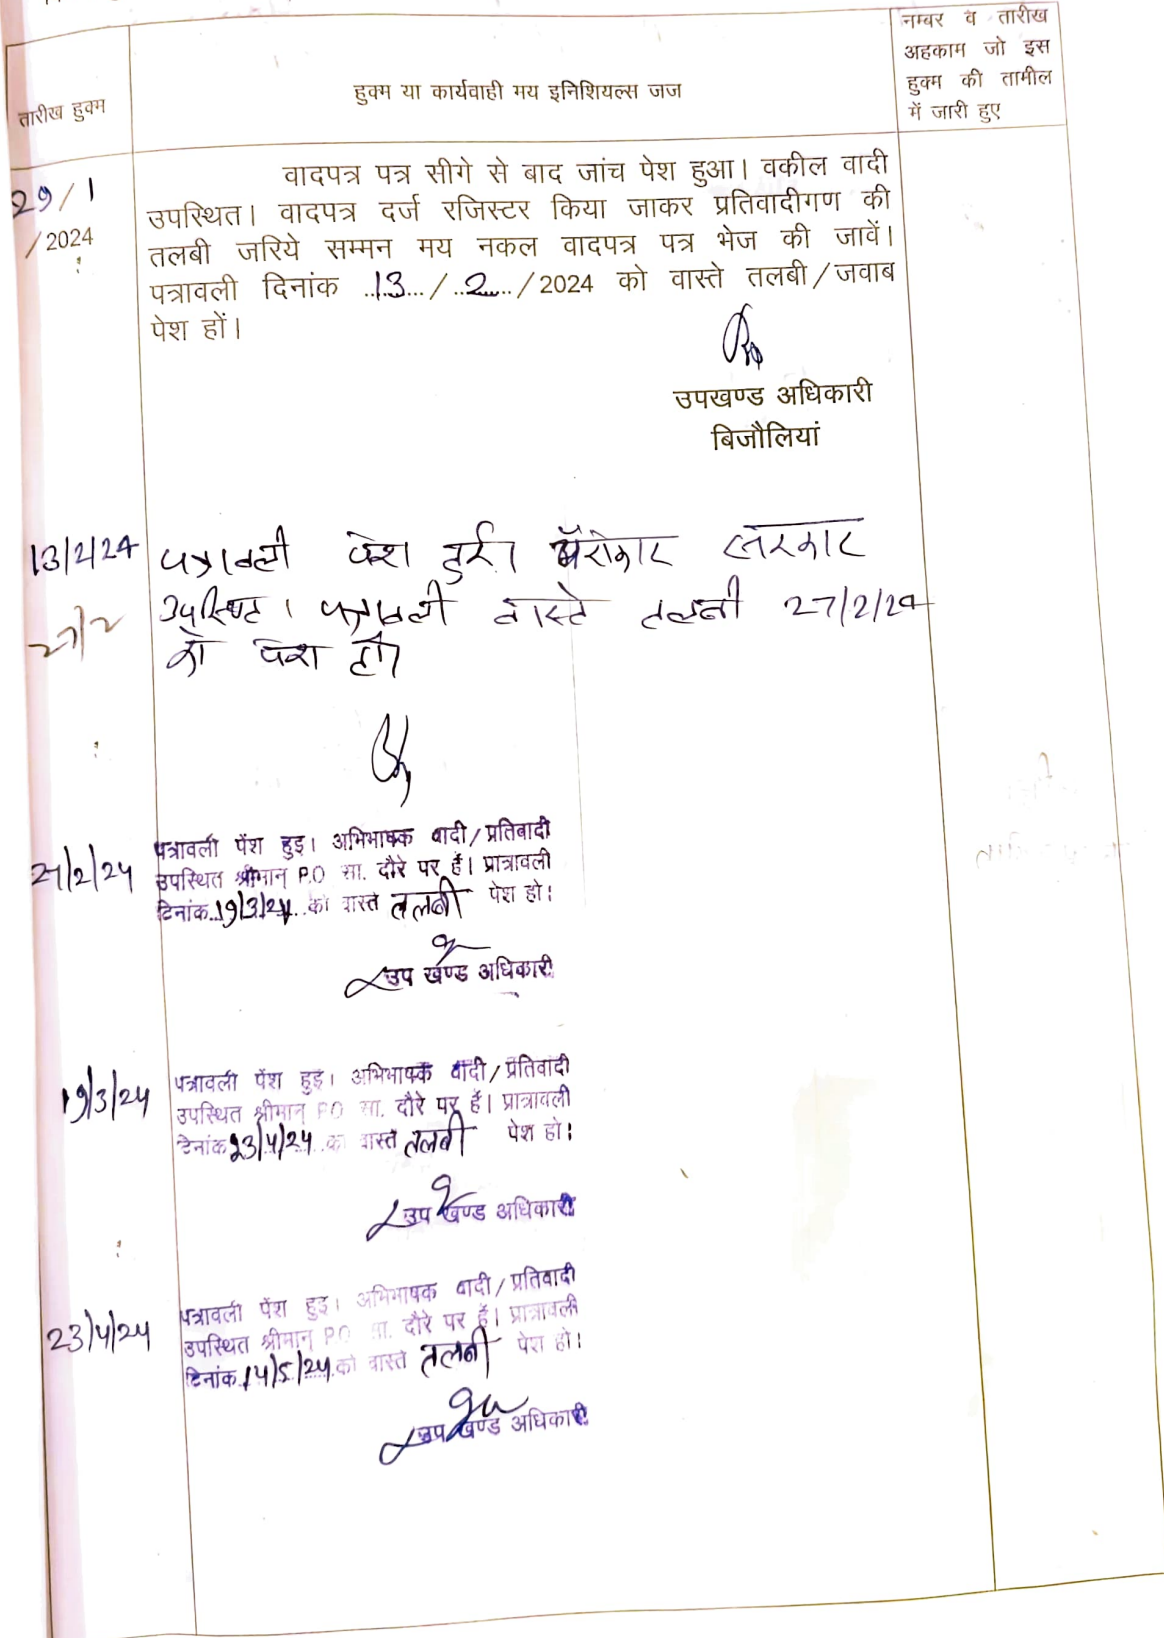 नम्बर व तारीख
अहकाम जो इस
हुक्म की तामील
में जारी हुए
हुक्म या कार्यवाही मय इनिशियल्स जज
तारीख हुक्म
29/1
/2024
वादपत्र पत्र सीगे से बाद जांच पेश हुआ। वकील वादी
उपस्थित। वादपत्र दर्ज रजिस्टर किया जाकर प्रतिवादीगण की
तलबी जरिये सम्मन मय नकल वादपत्र पत्र भेज की जावें।
पत्रावली दिनांक ..13.../..2..../2024 को वास्ते तलबी/जवाब
पेश हों।
उपखण्ड अधिकारी
बिजौलियां
13/2/24 पत्रावली पेश हुई। पैरोकार सरकार
उपस्थित। पत्रावली वास्ते तलबी 27/2/24
27/2
को पेश हो।
पत्रावली पेंश हुइ। अभिभाषक वादी/प्रतिवादी
27/2/24 उपस्थित श्रीमान् P.O सा. दौरे पर हैं। प्रात्रावली
दिनांक..19/3/24..को वास्ते तलबी पेश हो।
उप खण्ड अधिकारी
पत्रावली पेंश हुइ। अभिभाषक वादी/प्रतिवादी
19/3/24 उपस्थित श्रीमान् P.O सा. दौरे पर हैं। प्रात्रावली
दिनांक 23/4/24 को वास्ते तलबी पेश हो।
उप खण्ड अधिकारी
पत्रावली पेंश हुइ। अभिभाषक वादी/प्रतिवादी
23/4/24 उपस्थित श्रीमान् P.O सा. दौरे पर हैं। प्रात्रावली
दिनांक 14/5/24 को वास्ते तलबी पेश हो।
उप खण्ड अधिकारी